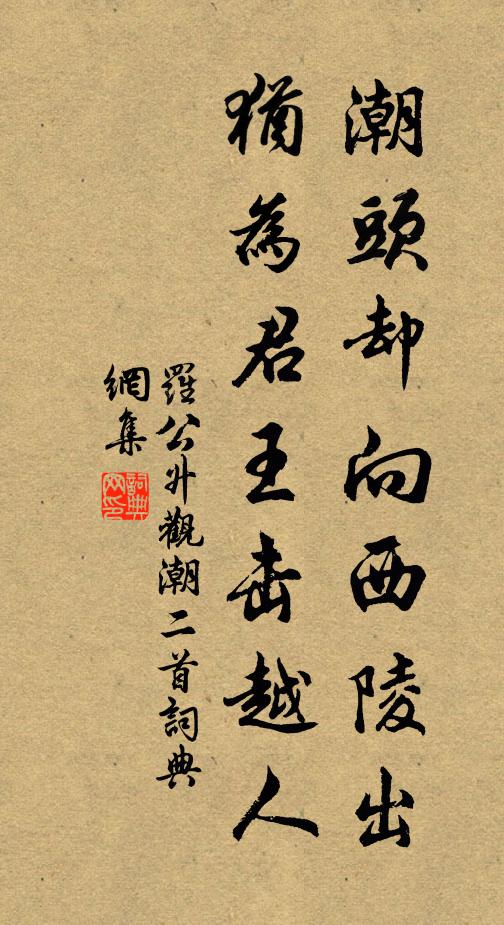 潮頭却向西陵出
猶為君王擊越人
羅公升觀潮二首詞典
網集
詞典
网印